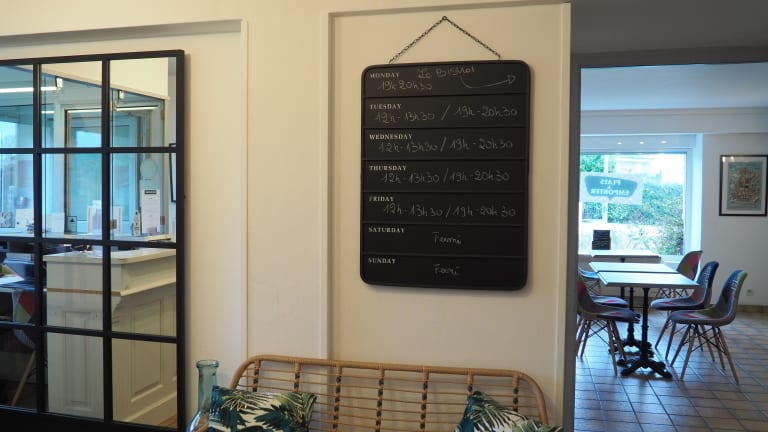 MONDAY Le Bistrot
19h-20h30
TUESDAY
12h-13h30 / 19h-20h30
WEDNESDAY
12h-13h30 / 19h-20h30
THURSDAY
12h-13h30 / 19h-20h30
FRIDAY
12h-13h30 / 19h-20h30
SATURDAY
Fermé
SUNDAY
Fermé
PLATS
à
EMPORTER